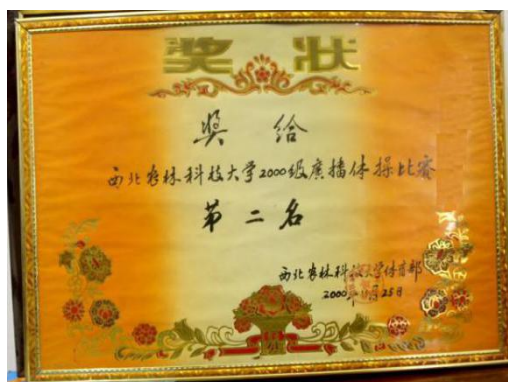 奖状
奖给
西北农林科技大学2000级广播体操比赛
第二名
西北农林科技大学体育部
2000年11月25日